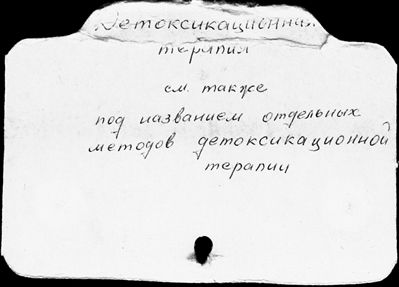 Детоксикационная
терапия
см. также
под названием отдельных
методов детоксикационной
терапии